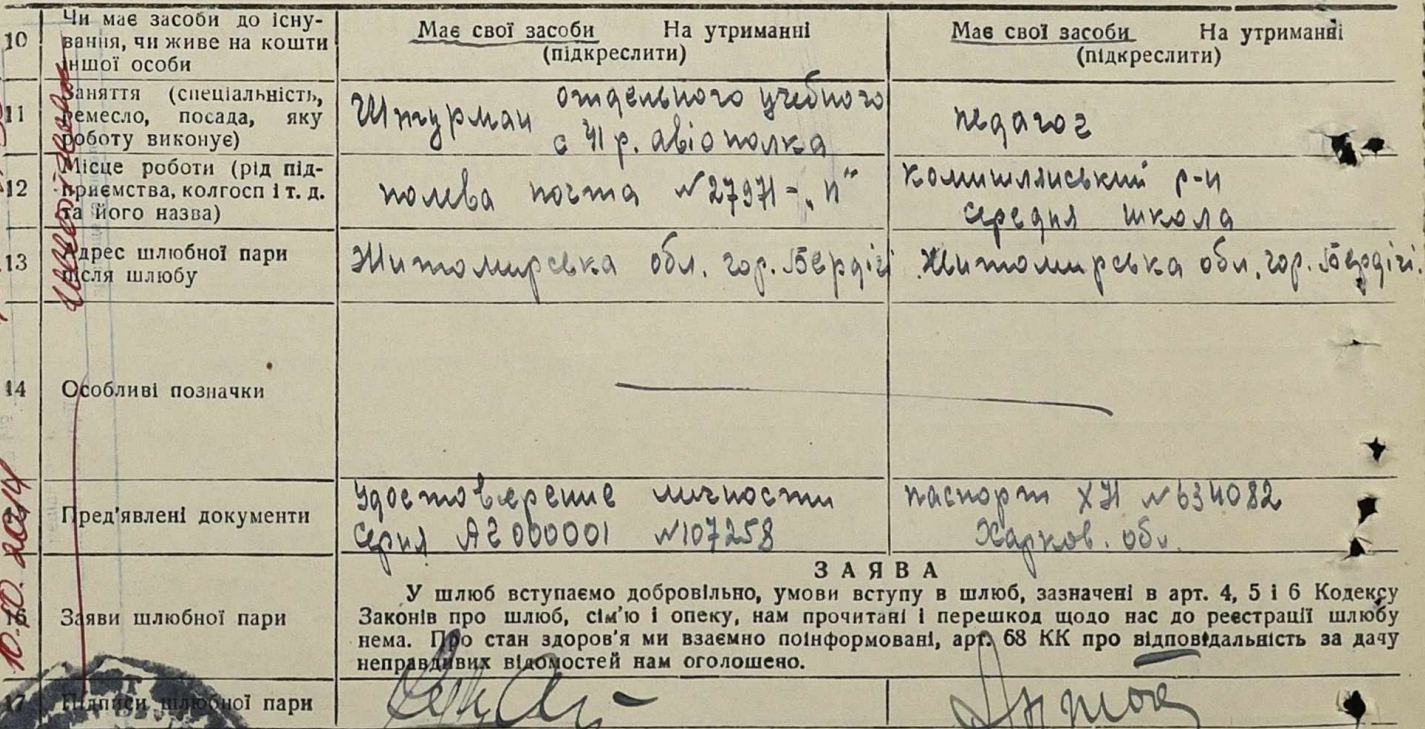 10
Чи має засоби до існу-
вання, чи живе на кошти
іншої особи
Має свої засоби На утриманні
(підкреслити)
Має свої засоби На утриманні
(підкреслити)
11
Заняття (спеціальність,
ремесло, посада, яку
роботу виконує)
Штурман отдельного учебного
авіополка
педагог
12
Місце роботи (рід під-
приємства, колгосп і т. д.
та його назва)
полева почта №27971-„П"
р-н
середня школа
13
Адрес шлюбної пари
після шлюбу
Житомирська обл. гор. Бердічі
Житомирська обл. гор. Бердічі.
14
Особливі позначки
Пред'явлені документи
Удостоверение личности
серия АГ 000001 №107258
паспорт №634082
Харков. обл.
Заяви шлюбної пари
ЗАЯВА
У шлюб вступаємо добровільно, умови вступу в шлюб, зазначені в арт. 4, 5 і 6 Кодексу
Законів про шлюб, сім'ю і опеку, нам прочитані і перешкод щодо нас до реєстрації шлюбу
нема. Про стан здоров'я ми взаємно поінформовані, арт. 68 КК про відповідальність за дачу
неправдивих відомостей нам оголошено.
17
Підписи шлюбної пари